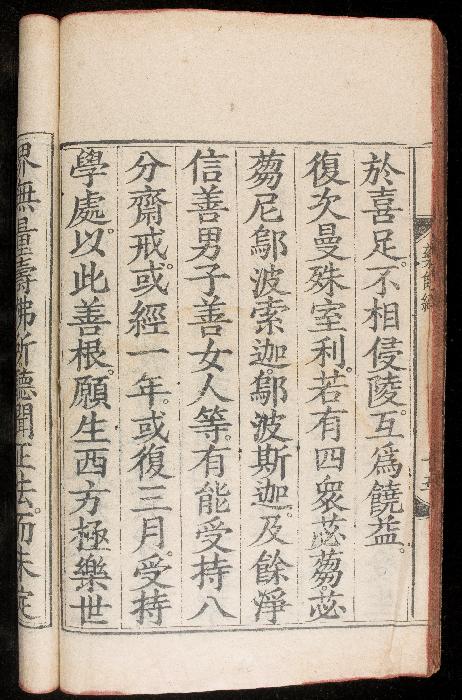 於喜足。不相侵陵。互爲饒益。
復次曼殊室利。若有四衆苾蒭苾
蒭尼鄔波索迦。鄔波斯迦。及餘淨
信善男子善女人等。有能受持八
分齋戒。或經一年。或復三月。受持
學處。以此善根。願生西方極樂世
界無量壽佛所聽聞正法。而未定